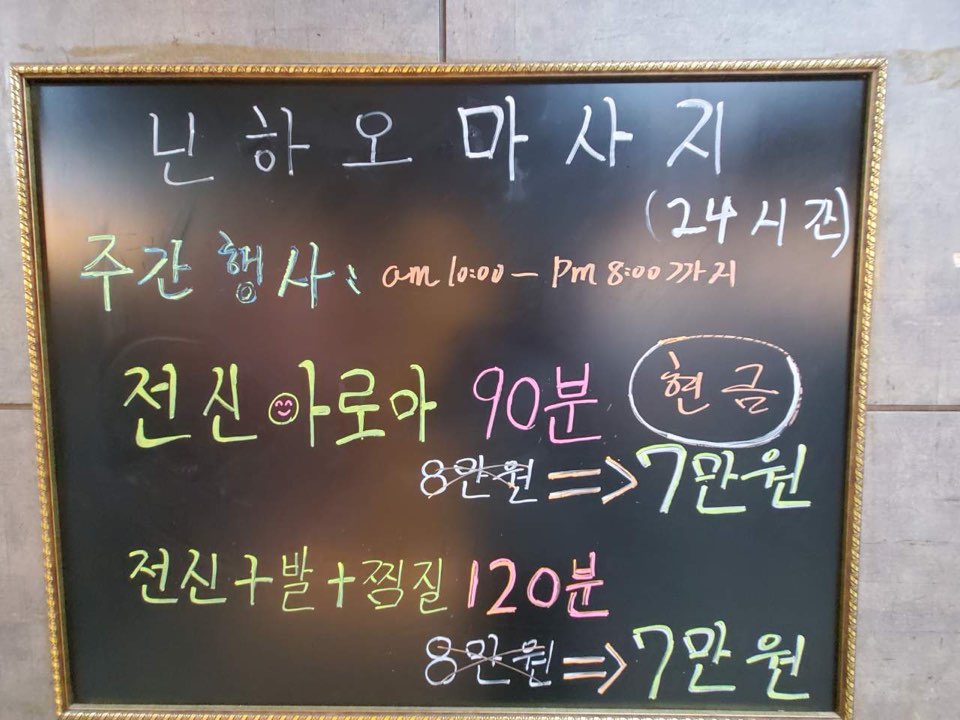 닌하오 마사지
(24시간)
주간 행사: am 10:00 - pm 8:00까지
전신 아로마 90분 현금
8만원 => 7만원
전신+발+찜질 120분
8만원 => 7만원